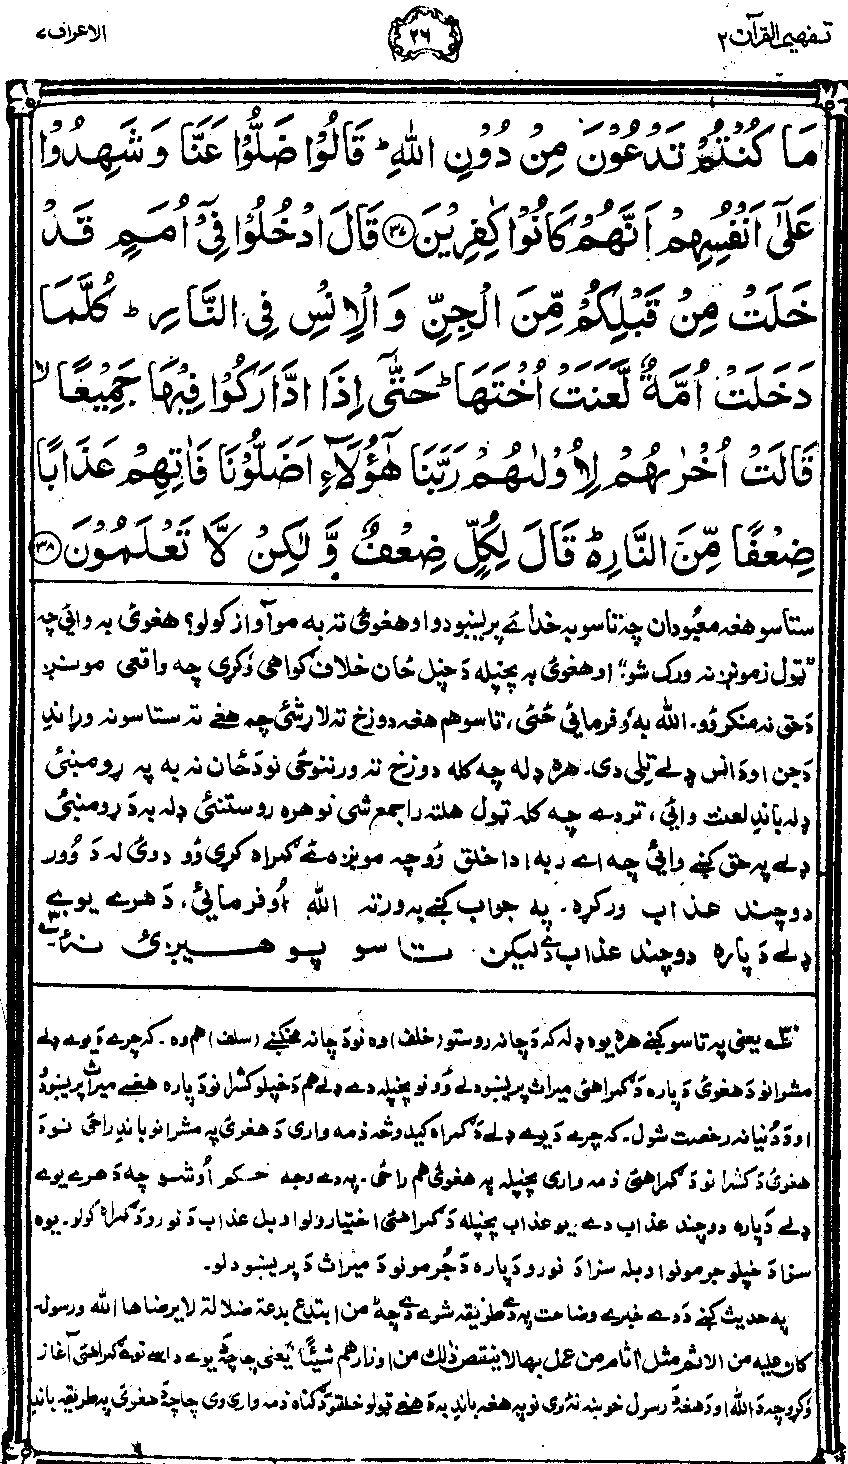 تفهيم القرآن ٢
٢٦
الاعراف ٧
مَا كُنْتُمْ تَدْعُوْنَ مِنْ دُوْنِ اللّٰهِ ۚ قَالُوْا ضَلُّوْا عَنَّا وَ شَهِدُوْا
عَلٰٓى اَنْفُسِهِمْ اَنَّهُمْ كَانُوْا كٰفِرِيْنَ ﴿٣٧﴾ قَالَ ادْخُلُوْا فِيْٓ اُمَمٍ قَدْ
خَلَتْ مِنْ قَبْلِكُمْ مِّنَ الْجِنِّ وَ الْاِنْسِ فِي النَّارِ ؕ كُلَّمَا
دَخَلَتْ اُمَّةٌ لَّعَنَتْ اُخْتَهَا ؕ حَتّٰٓى اِذَا ادَّارَكُوْا فِيْهَا جَمِيْعًا ۙ
قَالَتْ اُخْرٰىهُمْ لِاُوْلٰىهُمْ رَبَّنَا هٰٓؤُلَآءِ اَضَلُّوْنَا فَاٰتِهِمْ عَذَابًا
ضِعْفًا مِّنَ النَّارِ ؕ۬ قَالَ لِكُلٍّ ضِعْفٌ وَّ لٰكِنْ لَّا تَعْلَمُوْنَ ﴿٣٨﴾
ستاسو هغه معبودان چه تاسو به خدائے پريښودو او هغوئ ته به مو آواز کولو؟ هغوئ به وائي چه
"ټول زمونږ نه ورک شو" او هغوئ به پخپله دَ خپل ځان خلاف ګواهي وکړي چه واقعي مونږ
دَ حق نه منکر وُو. الله به وفرمائي ځئ، تاسو هم هغه دوزخ ته لاړ شئ چه هغے ته ستاسو نه وړاندِ
دَ جن او دَ انس ډلے تللي دي. هره ډله چه کله دوزخ ته ورننوځي نو دَ ځان نه به په رومبنئ
ډله باندِ لعنت وائي، تر دے چه کله ټول هلته راجمع شي نو هره روستنئ ډله به دَ رومبنئ
ډلے په حق کښے وائي چه اے ربه! دا خلق وُو چه مونږه ئے ګمراه کړي وُو دوئ له دَ وور
دوچند عذاب ورکړه. په جواب کښے به ورته الله اُوفرمائي، دَ هرے يوے
ډلے دَ پاره دوچند عذاب دے ليکن تاسو پوهيږئ نه.
يعني په تاسو کښے هره يوه ډله که دَ چا نه روستو (خلف) وه نو دَ چا نه مخکښے (سلف) هم وه. که چرے دَ يوے ډلے
مشرانو دَ هغوئ دَ پاره دَ ګمراهئ ميراث پريښودلے وُو نو پخپله دے ډلے هم دَ خپلو کشرانو دَ پاره هغسے ميراث پريښودُ
او دَ دنيا نه رخصت شول. که چرے دَ يوے ډلے دَ ګمراه کيدو څه ذمه واري دَ هغوئ په مشرانو باندِ راځي نو دَ
هغوئ دَ کشرانو دَ ګمراهئ ذمه واري پخپله په هغوئ هم راځي. په دے وجه حکم اُوشو چه دَ هرے يوے
ډلے دَ پاره دوچند عذاب دے. يو عذاب پخپله دَ ګمراهئ اختيارولو او بل عذاب دَ نورو دَ ګمراه کولو. يوه
سزا دَ خپلو جرمونو او بله سزا دَ نورو دَ پاره دَ جُرمونو دَ ميراث دَ پريښودلو.
په حديث کښے دَ دے خبرے وضاحت په دے طريقه شوے دے چه من ابتدع بدعة ضلالة لا يرضاها الله ورسوله
كان عليه من الاثم مثل آثام من عمل بها لا ينقص ذلك من اوزارهم شيئًا يعني چا چه دَ يوے داسے نوے ګمراهئ آغاز
وکړو چه دَ الله او دَ هغۀ دَ رسول خوښه نۀ وي نو په هغه باندِ به دَ هغے ټولو خلقو دَ ګناه ذمه واري وي چا چه دَ هغوئ په طريقه باندِ